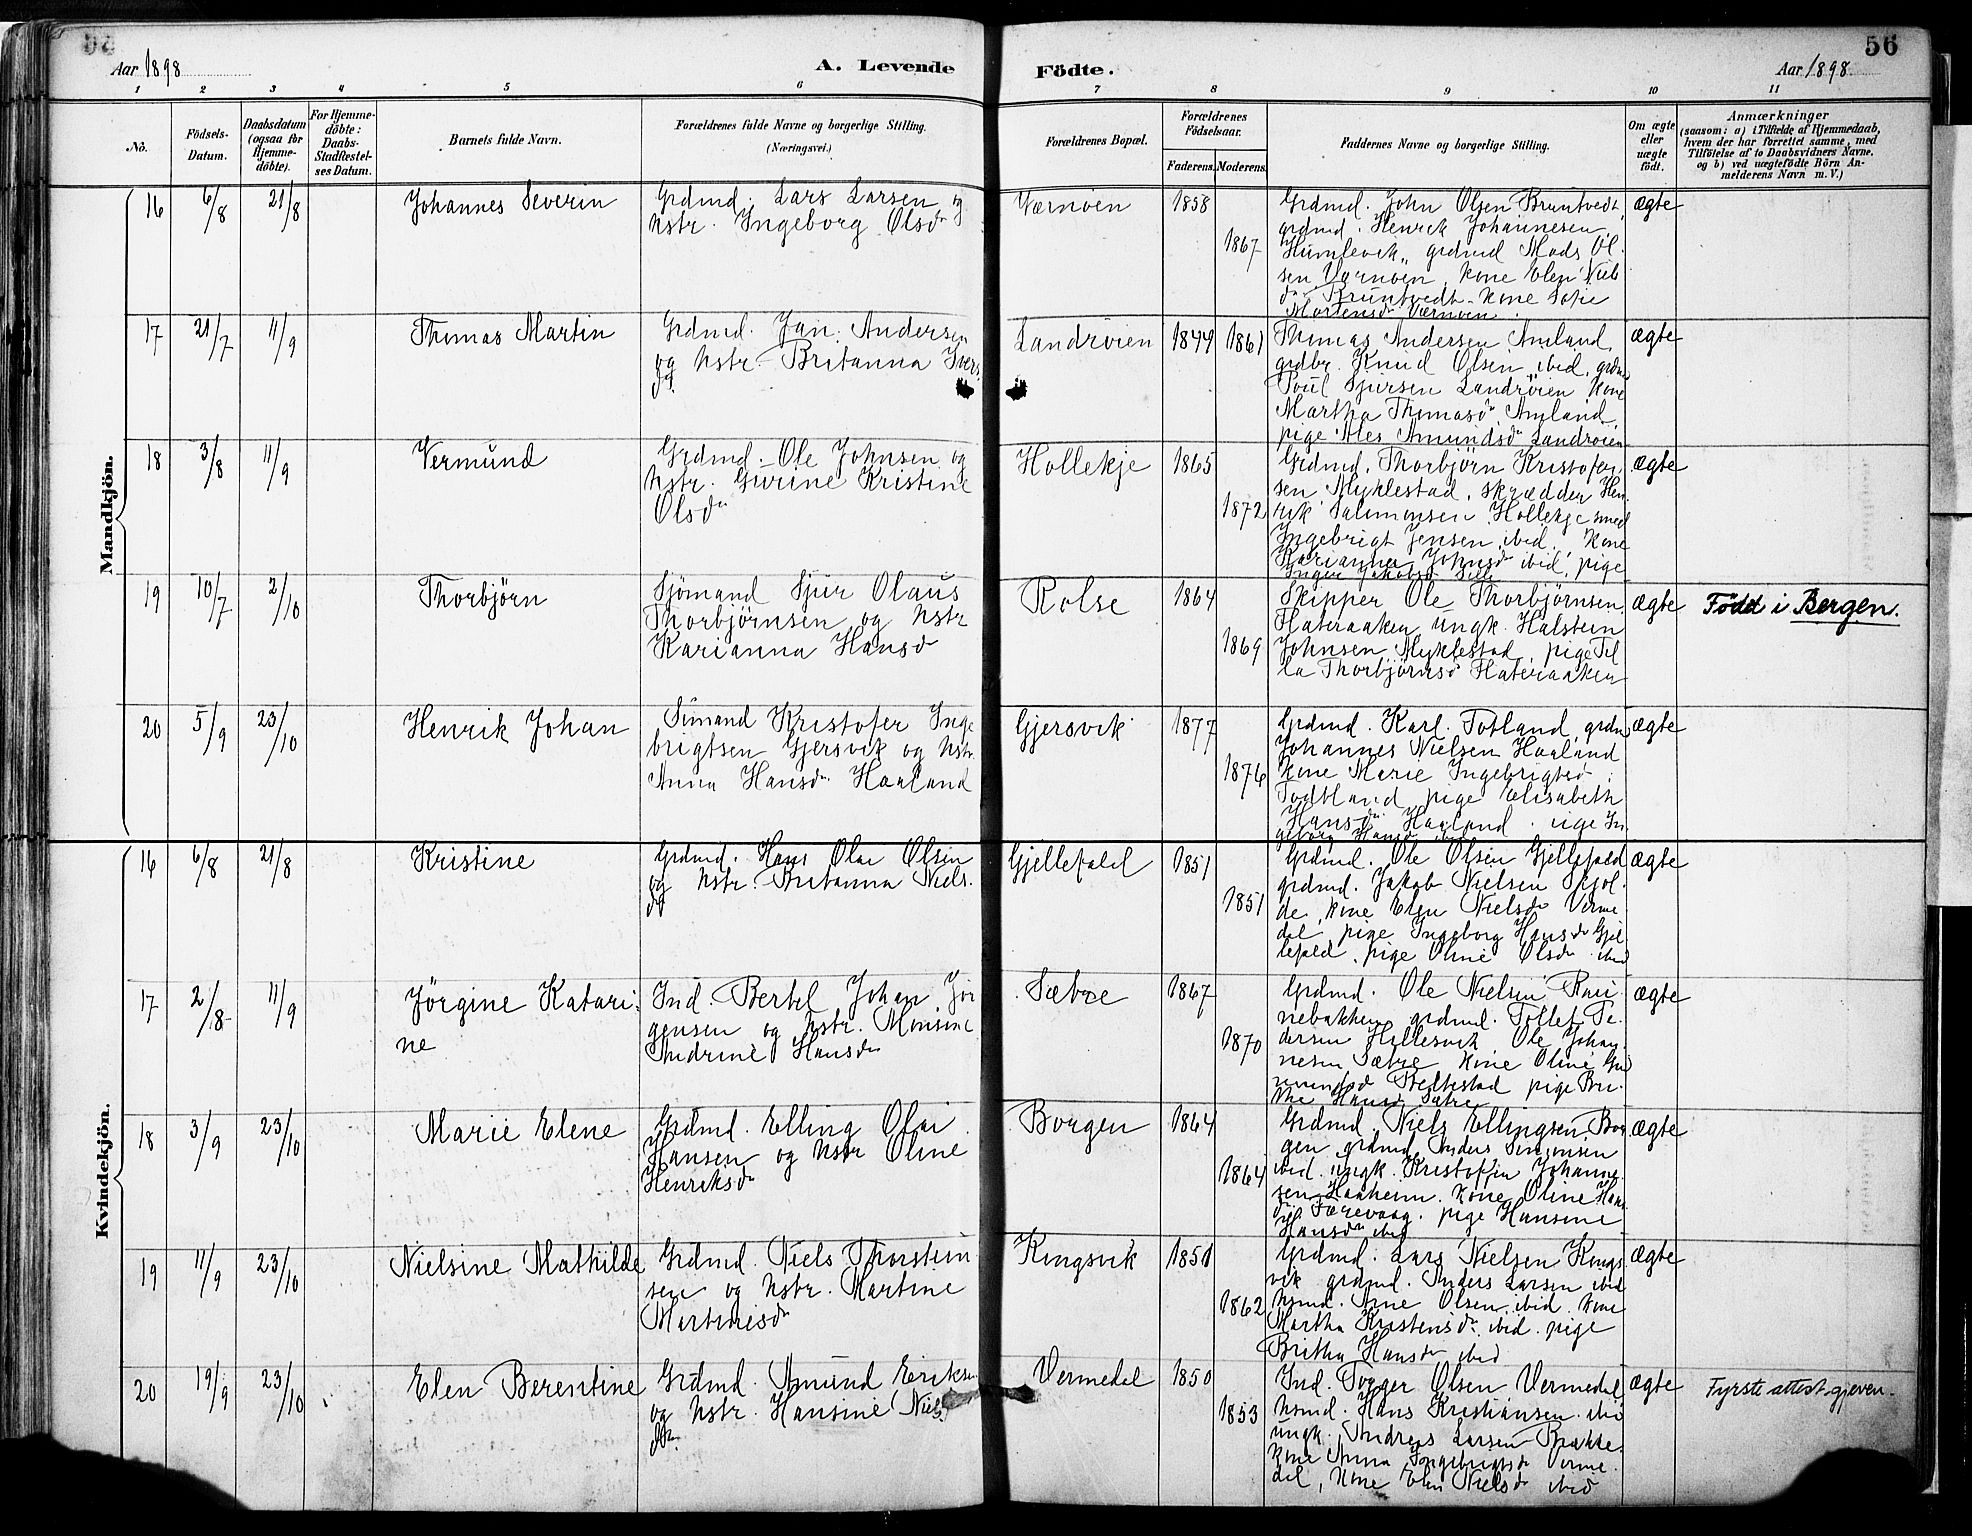 56
Aar 1898
A. Levende Födte.
Aar 1898
1 2 3 4 5 6 7 8 9 10 11
No.
Födsels-
Datum.
Daabsdatum
(ogsaa for
Hjemme-
döbte).
For Hjemme-
döbte:
Daabs-
Stadfæstel-
ses Datum.
Barnets fulde Navn.
Forældrenes fulde Navne og borgerlige Stilling.
(Næringsvei.)
Forældrenes Bopæl.
Forældrenes
Födselsaar.
Faderens. Moderens.
Faddernes Navne og borgerlige Stilling.
Om ægte
eller
uægte
födt.
Anmærkninger
(saasom: a) i Tilfælde af Hjemmedaab,
hvem der har forrettet samme, med
Tilföielse af to Daabsvidners Navne.
og b) ved uægtefödte Börn An-
melderens Navn m. V.)
Mandkjön.
16 6/8 21/8
Johannes Severin
Grdmd. Lars Larsen og
hstr. Ingeborg Olsdr
Værnöen
1858
1867
Grdmd. John Olsen Bruntvedt,
grdmd. Henrik Johannesen
Humlevik, grdmd Mads Ol-
sen Værnöen, kone Elen Niels
dr Bruntvedt, kone Sofie
Mortensdr Værnöen.
ægte
17 21/7 11/9
Thomas Martin
Grdmd. Jan Andersen
og hstr. Britanna Ivers
dr
Landröien
1844 1861
Thomas Andersen Amland,
grdbr. Knud Olsen ibid, grdmd
Poul Sjursen Landröien kone
Martha Thomasdr Amland,
pige Ales Amundsdr Landröien
ægte
18 3/8 11/9
Vermund
Grdmd. Ole Johnsen og
hstr. Gurine Kristine
Olsdr
Hollekje
1865
1872
Grdmd. Thorbjörn Kristofer-
sen Myklestad, skrædder Hen-
rik Salimonsen Hollekje smed
Ingebrigt Jensen ibid, kone
Karianna Johnsdr ibid, pige
Inger Jakobsdr
ægte
19 10/7 2/10
Thorbjörn
Sjömand Sjur Olaus
Thorbjörnsen og hstr
Karianna Hansd
Rolse
1864
1869
Skipper Ole Thorbjörnsen
Flateraaken ungk. Halstein
Johnsen Myklestad, pige Til
la Thorbjörnsd Flateraaken
ægte
Född i Bergen.
20 5/9 23/10
Henrik Johan
Sömand Kristofer Inge
brigtsen Gjersvik og hstr.
Anna Hansdr Haaland
Gjersvik
1877
1876
Grdmd. Karl Totland, grdmd
Johannes Nielsen Haaland
kone Marie Ingebrigtsd
Todtland, pige Elisabeth
Hansdr Haaland. pige In-
geborg Hansd
ægte
Kvindekjön.
16 6/8 21/8
Kristine
Grdmd. Hans Olai Olsen
og hstr. Britanna Niels.
dr
Gjellefald
1851
1851
Grdmd. Ole Olsen Gjellefald
grdmd. Jakob Nielsen Skjol-
de, kone Elen Nielsdr Verme
dal, pige Ingeborg Hansdr Gjel
lefald, pige Oline Olsdr ibid
ægte
17 2/8 11/9
Jörgine Katari-
ne
Ind. Bertel Johan Jör
gensen og hstr. Monsine
Andrine Hansdr
Sætre
1867
1870
Grdmd. Ole Nielsen
nebakken grdmd. Tollef Pe-
dersen Hillesvik Ole Johan-
nesen Sætre kone Oline Gud
mundsd pige Bri-
the Hansd Sætre
ægte
18 3/9 23/10
Marie Elene
Grdmd. Elling Olai
Hansen og hstr Oline
Henriksdr
Borgen
1864
1864
Grdmd. Niels Ellingsen Bor
gen grdmd. Anders Simonsen
ibid. ungk. Kristoffer Johanne-
sen Haaheim. kone Oline Hans
dr Færevaag. pige Hansine
Hansdr ibid
ægte
19 11/9 23/10
Nielsine Mathilde
Grdmd. Niels Thorstein
sen og hstr. Martine
Martinusdr
Kingsvik
1851
1862
Grdmd. Lars Nielsen Kings
vik grdmd. Anders Larsen ibid
hsmd. Arne Olsen ibid. kone
Martha Kristensdr ibid. pige
Britha Hansdr ibid
ægte
20 19/9 23/10
Elen Berentine
Grdmd. Amund Eriksen
og hstr. Hansine Niels
dr.
Vermedal
1850
1853
Ind. Torger Olsen Vermedal
hsmd. Hans Kristiansen ibid
ungk. Andreas Larsen Brakke.
kone Anna Ingebrigtsdr Verme-
dal, kone Elen Nielsdr ibid
ægte
Fyrste attest gjeven.